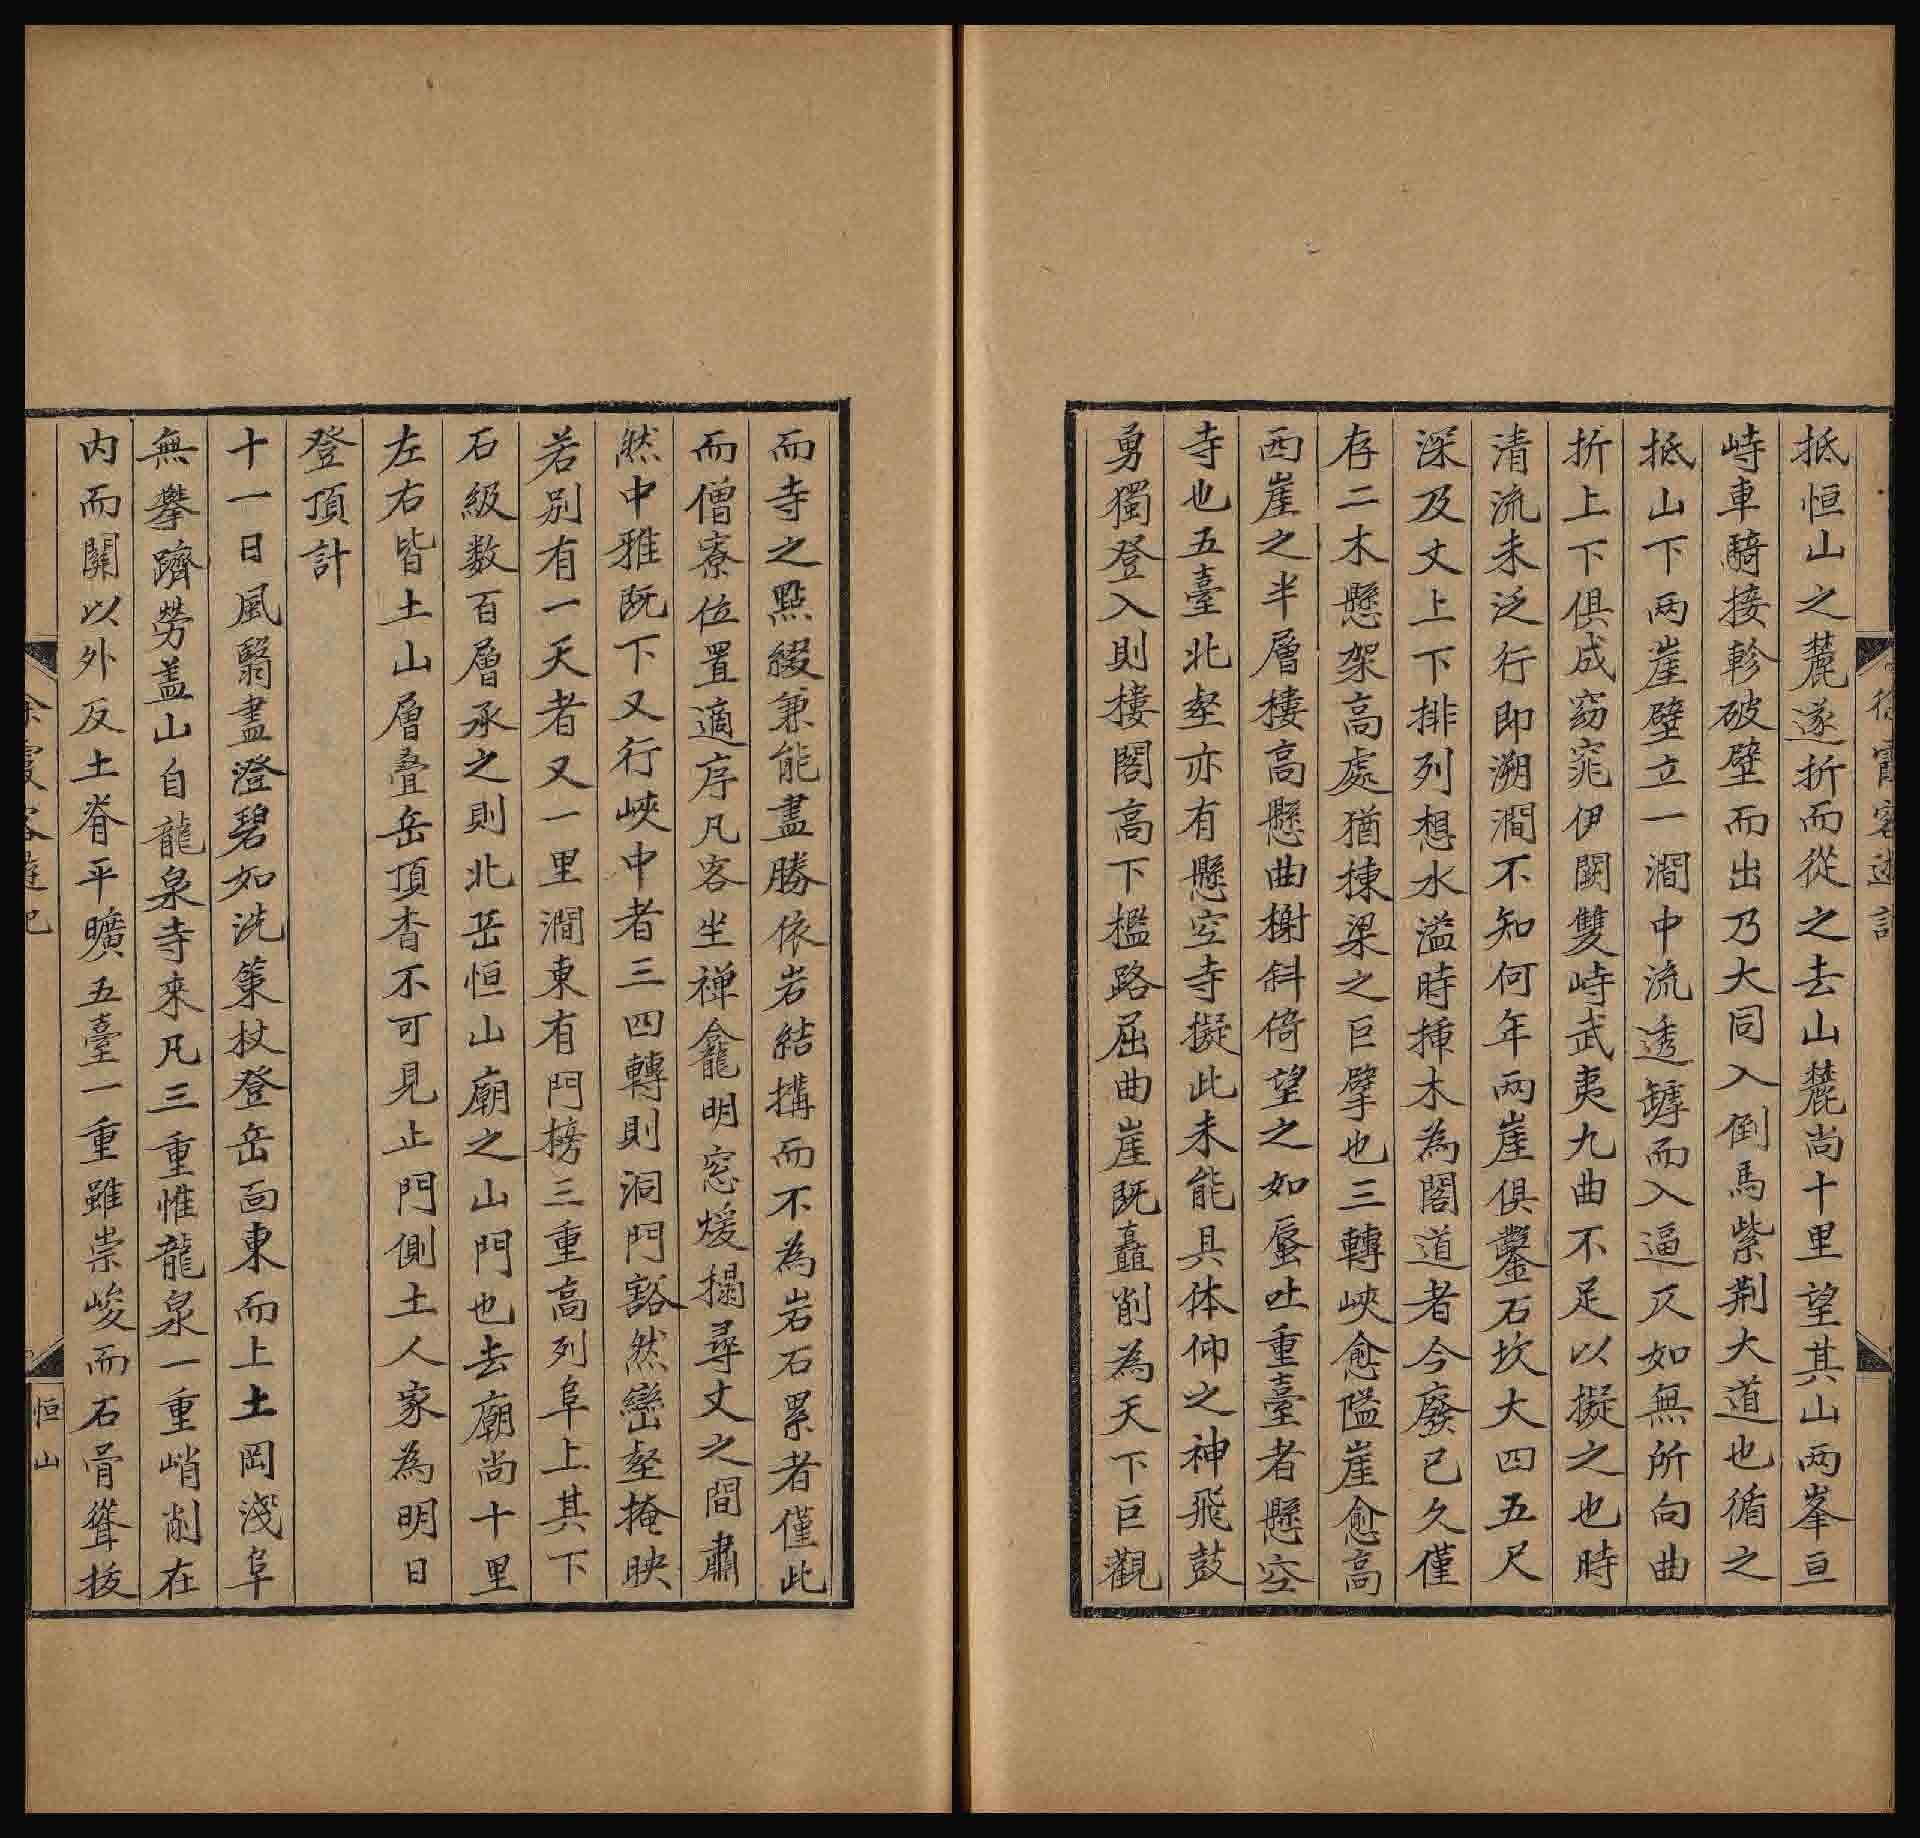 徐霞客遊記
抵恒山之麓遂折而從之去山麓尚十里望其山兩峯亘
峙車騎接軫破壁而出乃大同入倒馬紫荆大道也循之
抵山下兩崖壁立一澗中流透罅而入逼仄如無所向曲
折上下俱成窈窕伊闕雙峙武夷九曲不足以擬之也時
清流未泛行即溯澗不知何年兩崖俱鑿石坎大四五尺
深及丈上下排列想水溢時揷木為閣道者今廢已久僅
存二木懸架高處猶棟梁之巨擘也三轉峽愈隘崖愈高
西崖之半層樓高懸曲榭斜倚望之如蜃吐重臺者懸空
寺也五臺北壑亦有懸空寺擬此未能具体仰之神飛鼓
勇獨登入則樓閣高下檻路屈曲崖既矗削為天下巨觀
而寺之點綴兼能盡勝依岩結搆而不為岩石累者僅此
而僧寮位置適序凡客坐禅龕明窓煖榻尋丈之間肅
然中雅既下又行峽中者三四轉則洞門豁然巒壑掩映
若别有一天者又一里澗東有門榜三重高列阜上其下
石級数百層承之則北岳恒山廟之山門也去廟尚十里
左右皆土山層叠岳頂杳不可見止門側土人家為明日
登頂計
十一日風翳盡澄碧如洗策杖登岳面東而上土岡淺阜
無攀躋勞盖山自龍泉寺來凡三重惟龍泉一重峭削在
内而關以外反土脊平曠五臺一重雖崇峻而石骨聳拔
徐霞客遊記
恒山